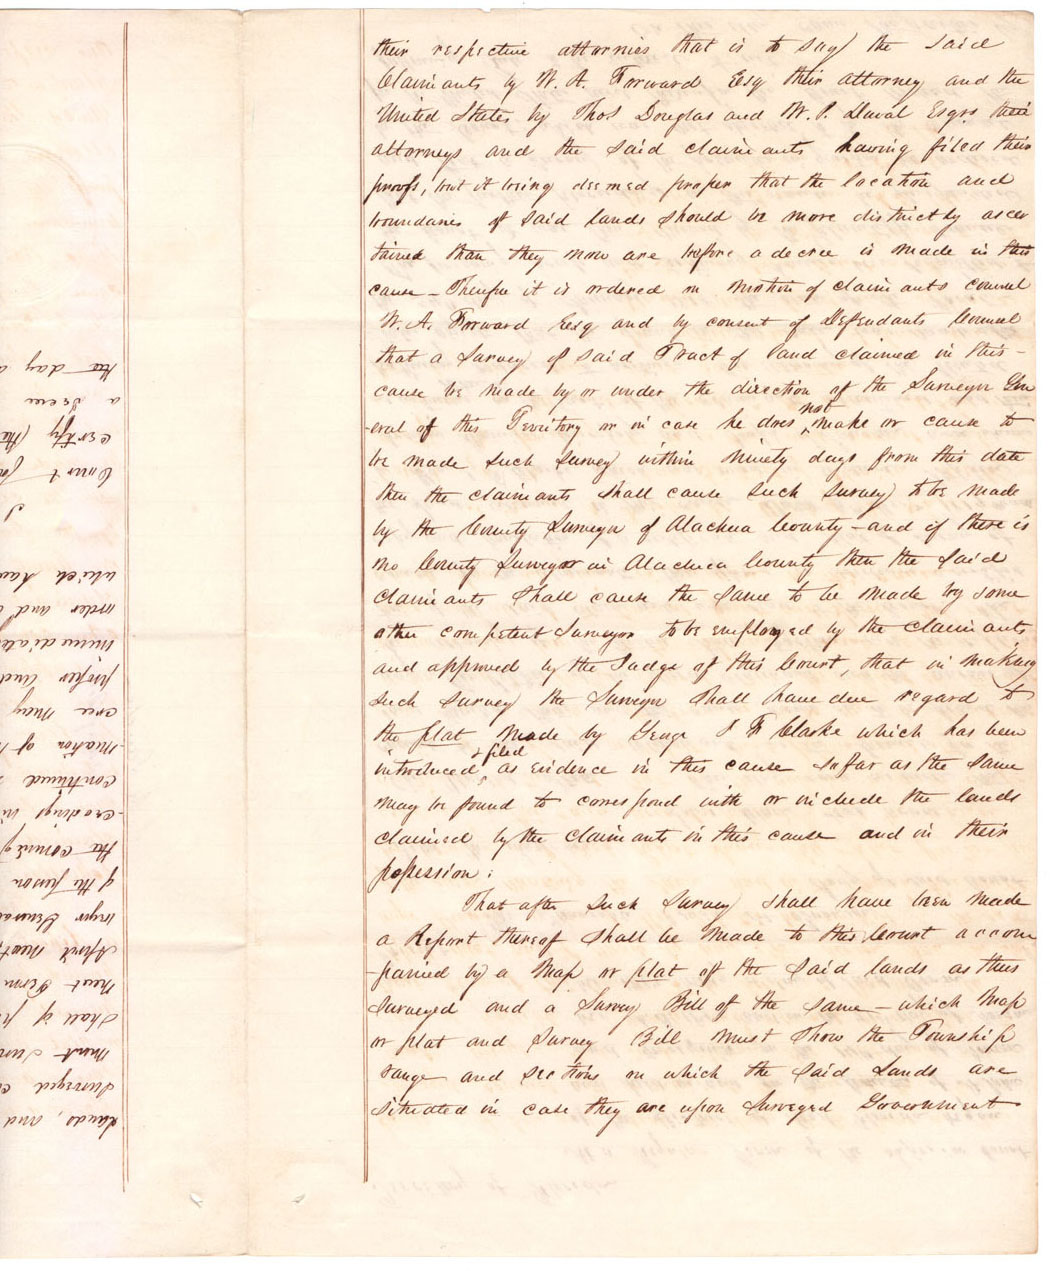 their respective attornies that is to say the said
Claimants by W. A. Forward Esq their attorney and the
United States by Thos Douglas and W. P. Duval Esqrs their
attorneys and the said claimants having filed their
proofs, but it being deemed proper that the location and
boundaries of said lands should be more districtly ascer
tained than they now are before a decree is made in this
cause - Therefore it is ordered on motion of claimants counsel
W. A. Forward Esq and by consent of Defendants Counsel
that a Survey of said Tract of land claimed in this -
cause be made by or under the direction of the Surveyor Gen
-eral of this Territory or in case he does not make or cause to
be made such survey within ninety days from this date
then the claimants shall cause such survey to be made
by the County Surveyor of Alachua County - and if there is
no County Surveyor in Alachua County then the said
claimants shall cause the same to be made by some
other competent Surveyor to be employed by the claimants
and approved by the Judge of this Court, that in making
such survey the Surveyor shall have due regard to
the plat made by George J F Clarke which has been
introduced & filed as evidence in this cause so far as the same
may be found to correspond with or include the lands
claimed by the claimants in this cause and in their
possession:
That after such Survey shall have been made
a Report thereof shall be made to this Court accom
-panied by a map or plat of the said lands as thus
surveyed and a Survey Bill of the same - which map
or plat and survey Bill must show the Township
range and sections on which the said Lands are
situated in case they are upon Surveyed Government
lands, and
surveyed
ment
shall if
next Term
April next
of the person
the
continued
ation of
once may
proper
order and
which
Court
certify
a
the day